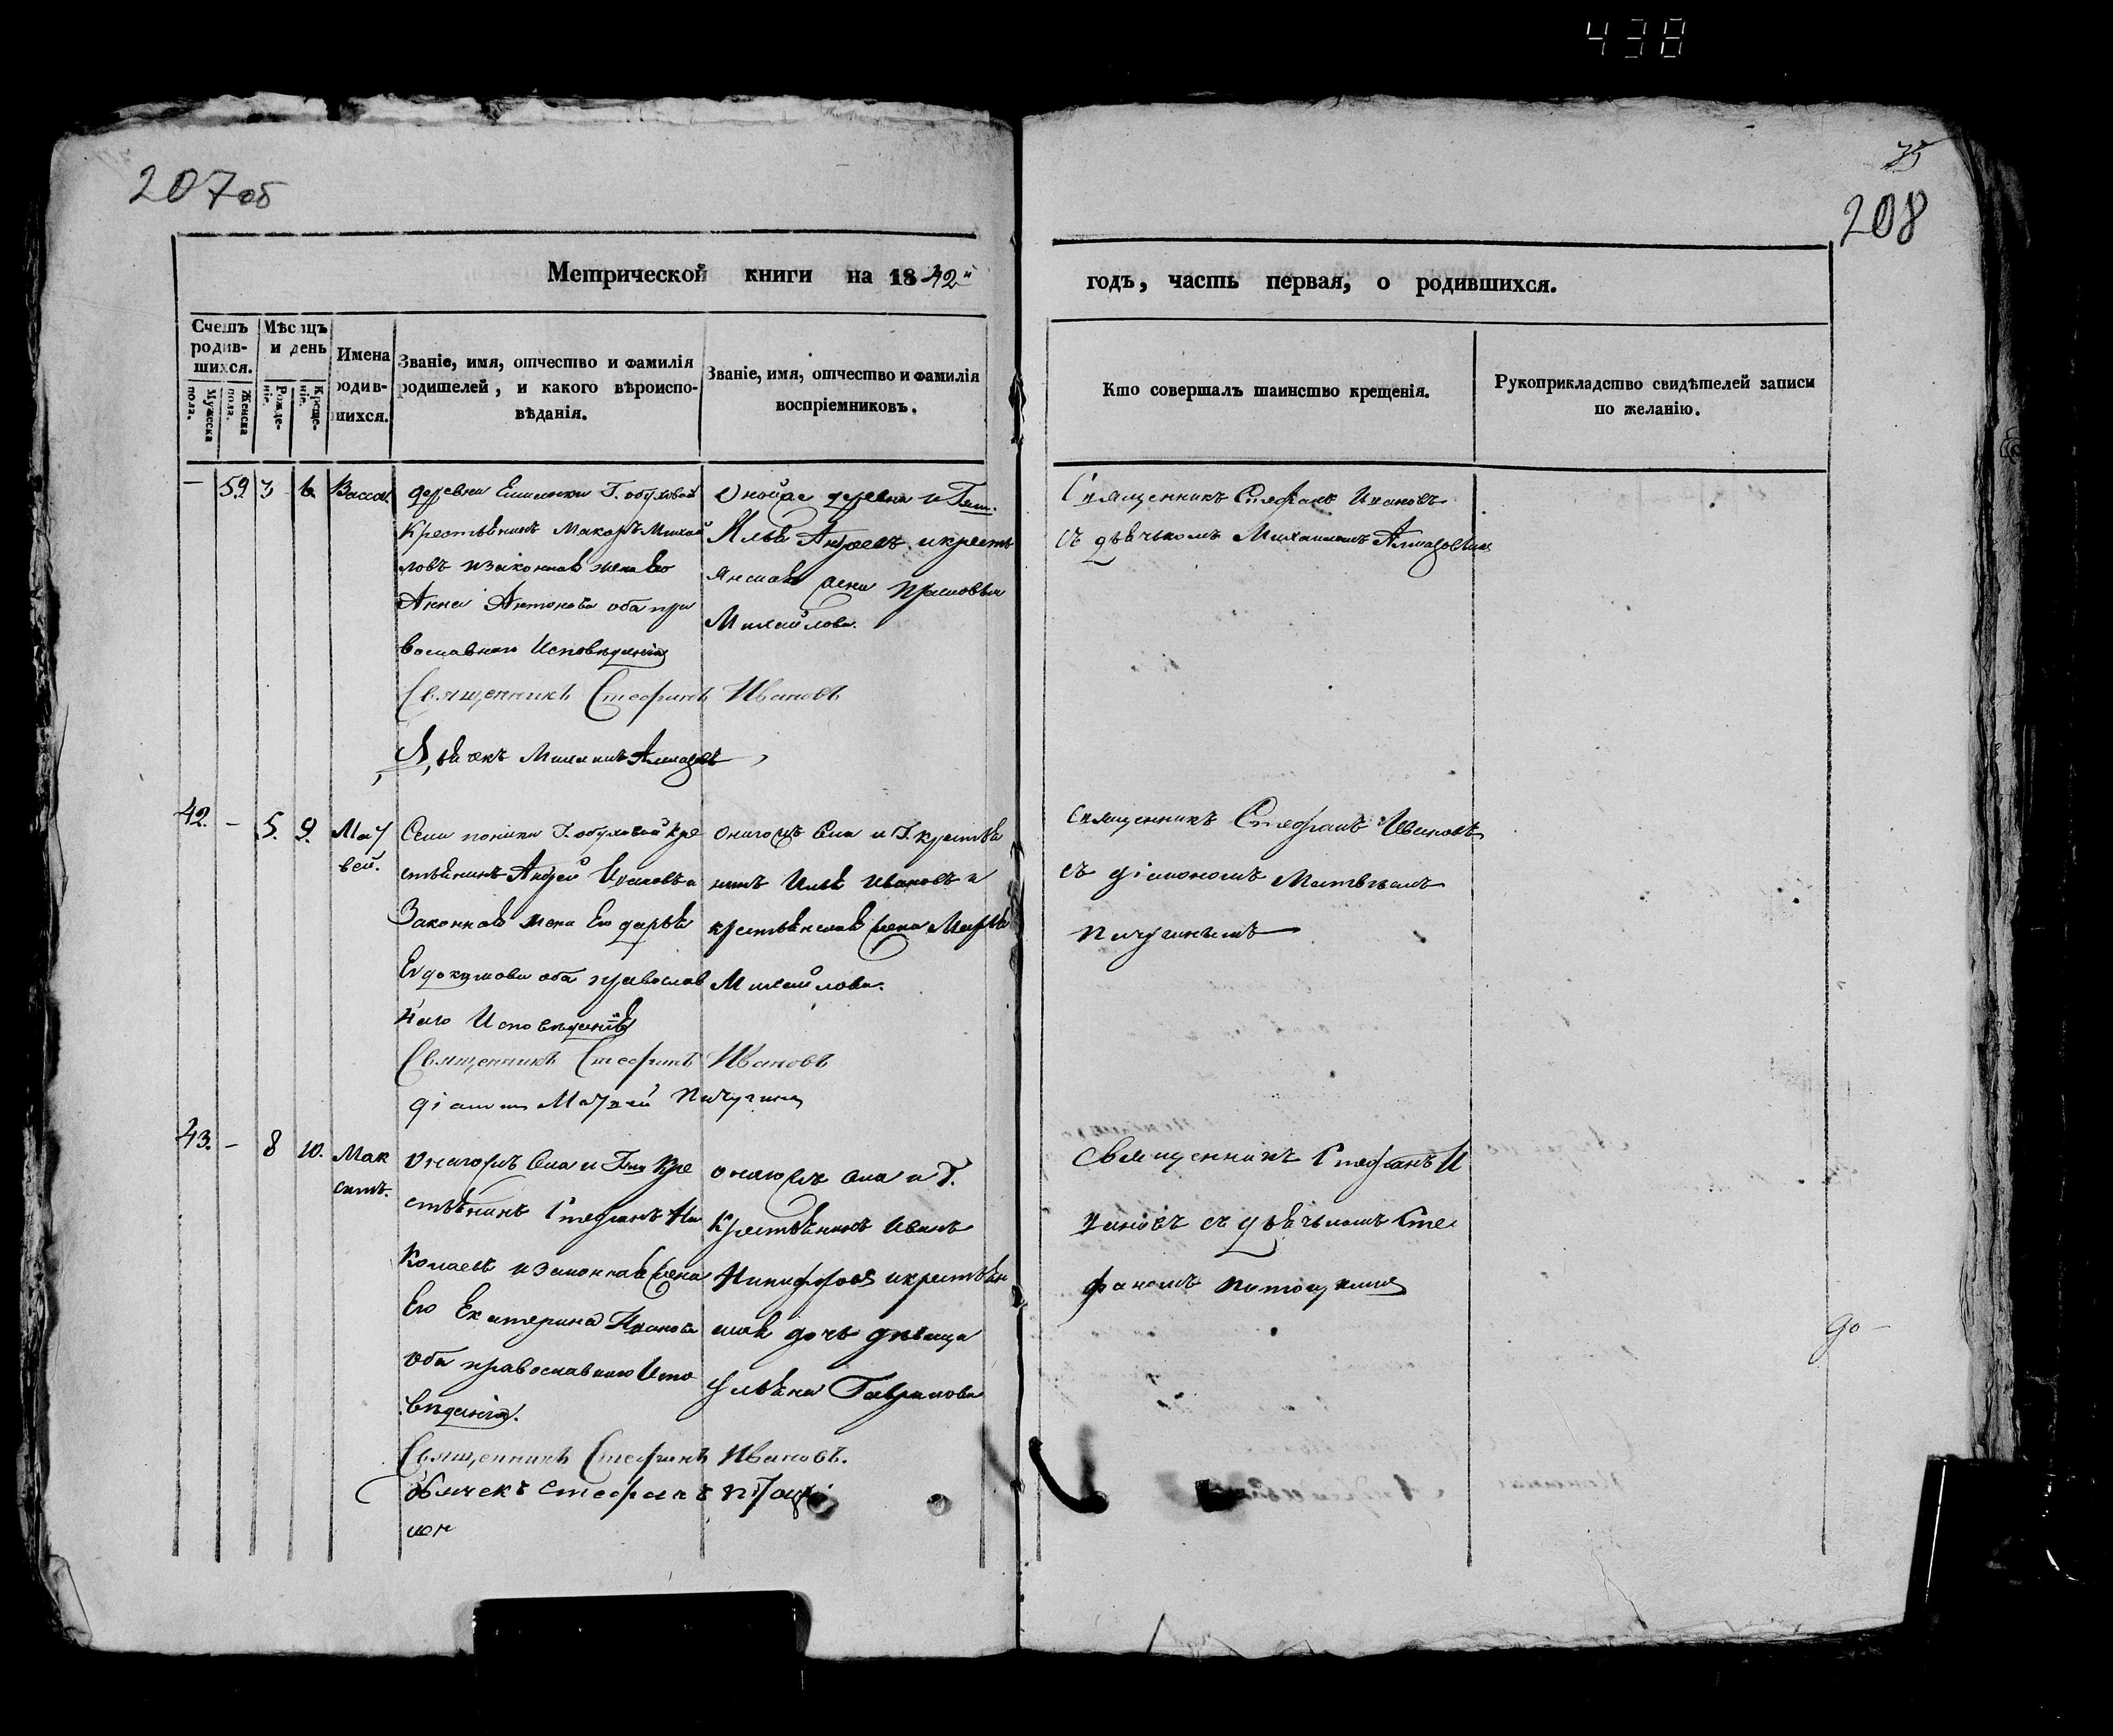 438
207 об
75
208
Метрической книги на 1842й
годъ, часть первая, о родившихся.
Счетъ родив-шихся.
Мужеска пола.
Женска пола.
Мѣсяцъ и день
Рожде-нія.
Креще-нія.
Имена родив-шихся.
Званіе, имя, отчество и фамилія
родителей, и какого вѣроиспо-
вѣданія.
Званіе, имя, отчество и фамилія
воспріемниковъ.
Кто совершалъ таинство крещенія.
Рукоприкладство свидѣтелей записи
по желанію.
— 59 3 6. Васса.
деревни Г. обуховой
Крестьянинъ Макаръ Михай
ловъ и законная жена его
Анна Антонова оба пра
вославнаго Исповѣданія
Священникъ Стефанъ Ивановъ
Дьячекъ Михаилъ Алмазовъ
оной же деревни и Гжи.
Илья Андреевъ и кресть
янская жена Прасковья
Михайлова.
Священникъ Стефанъ Ивановъ
съ дьячькомъ Михаиломъ Алмазовымъ
42. — 5. 9. Маѳ
вей.
Села Г. обуховой Кре
стьянинъ Андрей и
Законная жена Его дарья
Евдокимова оба православ
наго Исповѣданія
Священникъ Стефанъ Ивановъ
діаконъ Маѳвей Пичугинъ
онагожъ села и Г. крестья
нинъ Илья Ивановъ и
крестьянская жена Марья
Михайлова.
священникъ Стефанъ Ивановъ
съ діакономъ Матвѣемъ
Пичугинымъ
43. — 8 10. Мак
симъ.
онагожъ села и Гжи Кре
стьянинъ Стефанъ Ни
колаевъ и законная жена
Его Екатерина Иванова
оба православнаго Испо
вѣданія.
Священникъ Стефанъ Ивановъ.
дьячекъ Стефанъ
онагожъ села и Г.
Крестьянинъ Иванъ
Никифоровъ и крестьян
ская дочь дѣвица
Ульяна Гаврилова
Священникъ Стефанъ И
вановъ съ дьячькомъ Сте
фаномъ
90 —